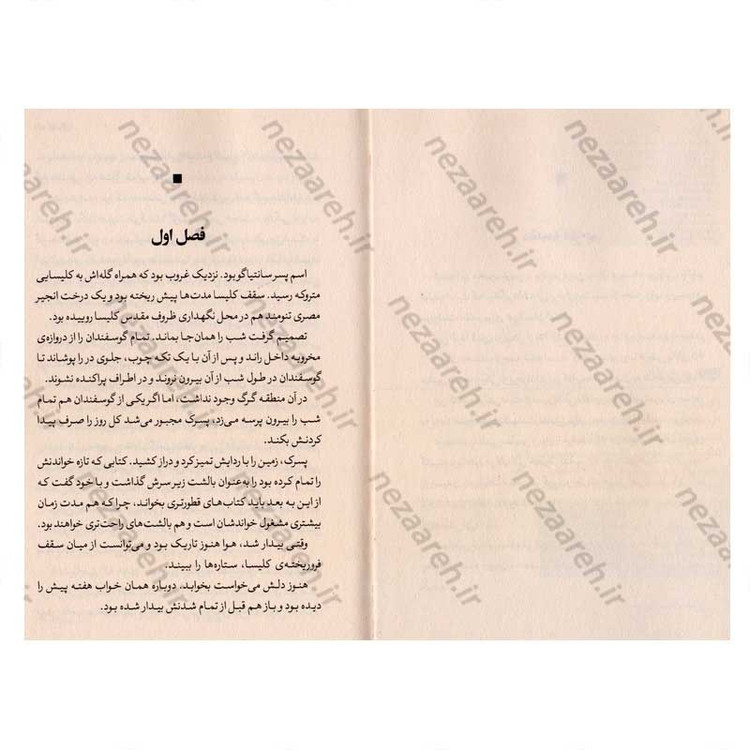 فصل اول
اسم پسر سانتیاگو بود. نزدیک غروب بود که همراه گله‌اش به کلیسایی
متروکه رسید. سقف کلیسا مدت‌ها پیش ریخته بود و یک درخت انجیر
مصری تنومند هم در محل نگهداری ظروف مقدس کلیسا روییده بود.
تصمیم گرفت شب را همان‌جا بماند. تمام گوسفندان را از دروازه‌ی
مخروبه داخل راند و پس از آن با یک تکه چوب، جلوی در را پوشاند تا
گوسفندان در طول شب از آن بیرون نروند و در اطراف پراکنده نشوند.
در آن منطقه گرگ وجود نداشت، اما اگر یکی از گوسفندان هم تمام
شب را بیرون پرسه می‌زد، پسرک مجبور می‌شد کل روز را صرف پیدا
کردنش بکند.
پسرک، زمین را با ردایش تمیز کرد و دراز کشید. کتابی که تازه خواندنش
را تمام کرده بود را به‌عنوان بالشت زیر سرش گذاشت و با خود گفت که
از این به بعد باید کتاب‌های قطورتری بخواند، چرا که هم مدت زمان
بیشتری مشغول خواندشان است و هم بالشت‌های راحت‌تری خواهند بود.
وقتی بیدار شد، هوا هنوز تاریک بود و می‌توانست از میان سقف
فروریخته‌ی کلیسا، ستاره‌ها را ببیند.
هنوز دلش می‌خواست بخوابد، دوباره همان خواب هفته پیش را
دیده بود و باز هم قبل از تمام شدنش بیدار شده بود.
nezaareh.ir
nezaareh.ir
nezaareh.ir
nezaareh.ir
nezaareh.ir
nezaareh.ir
nezaareh.ir
nezaareh.ir
nezaareh.ir